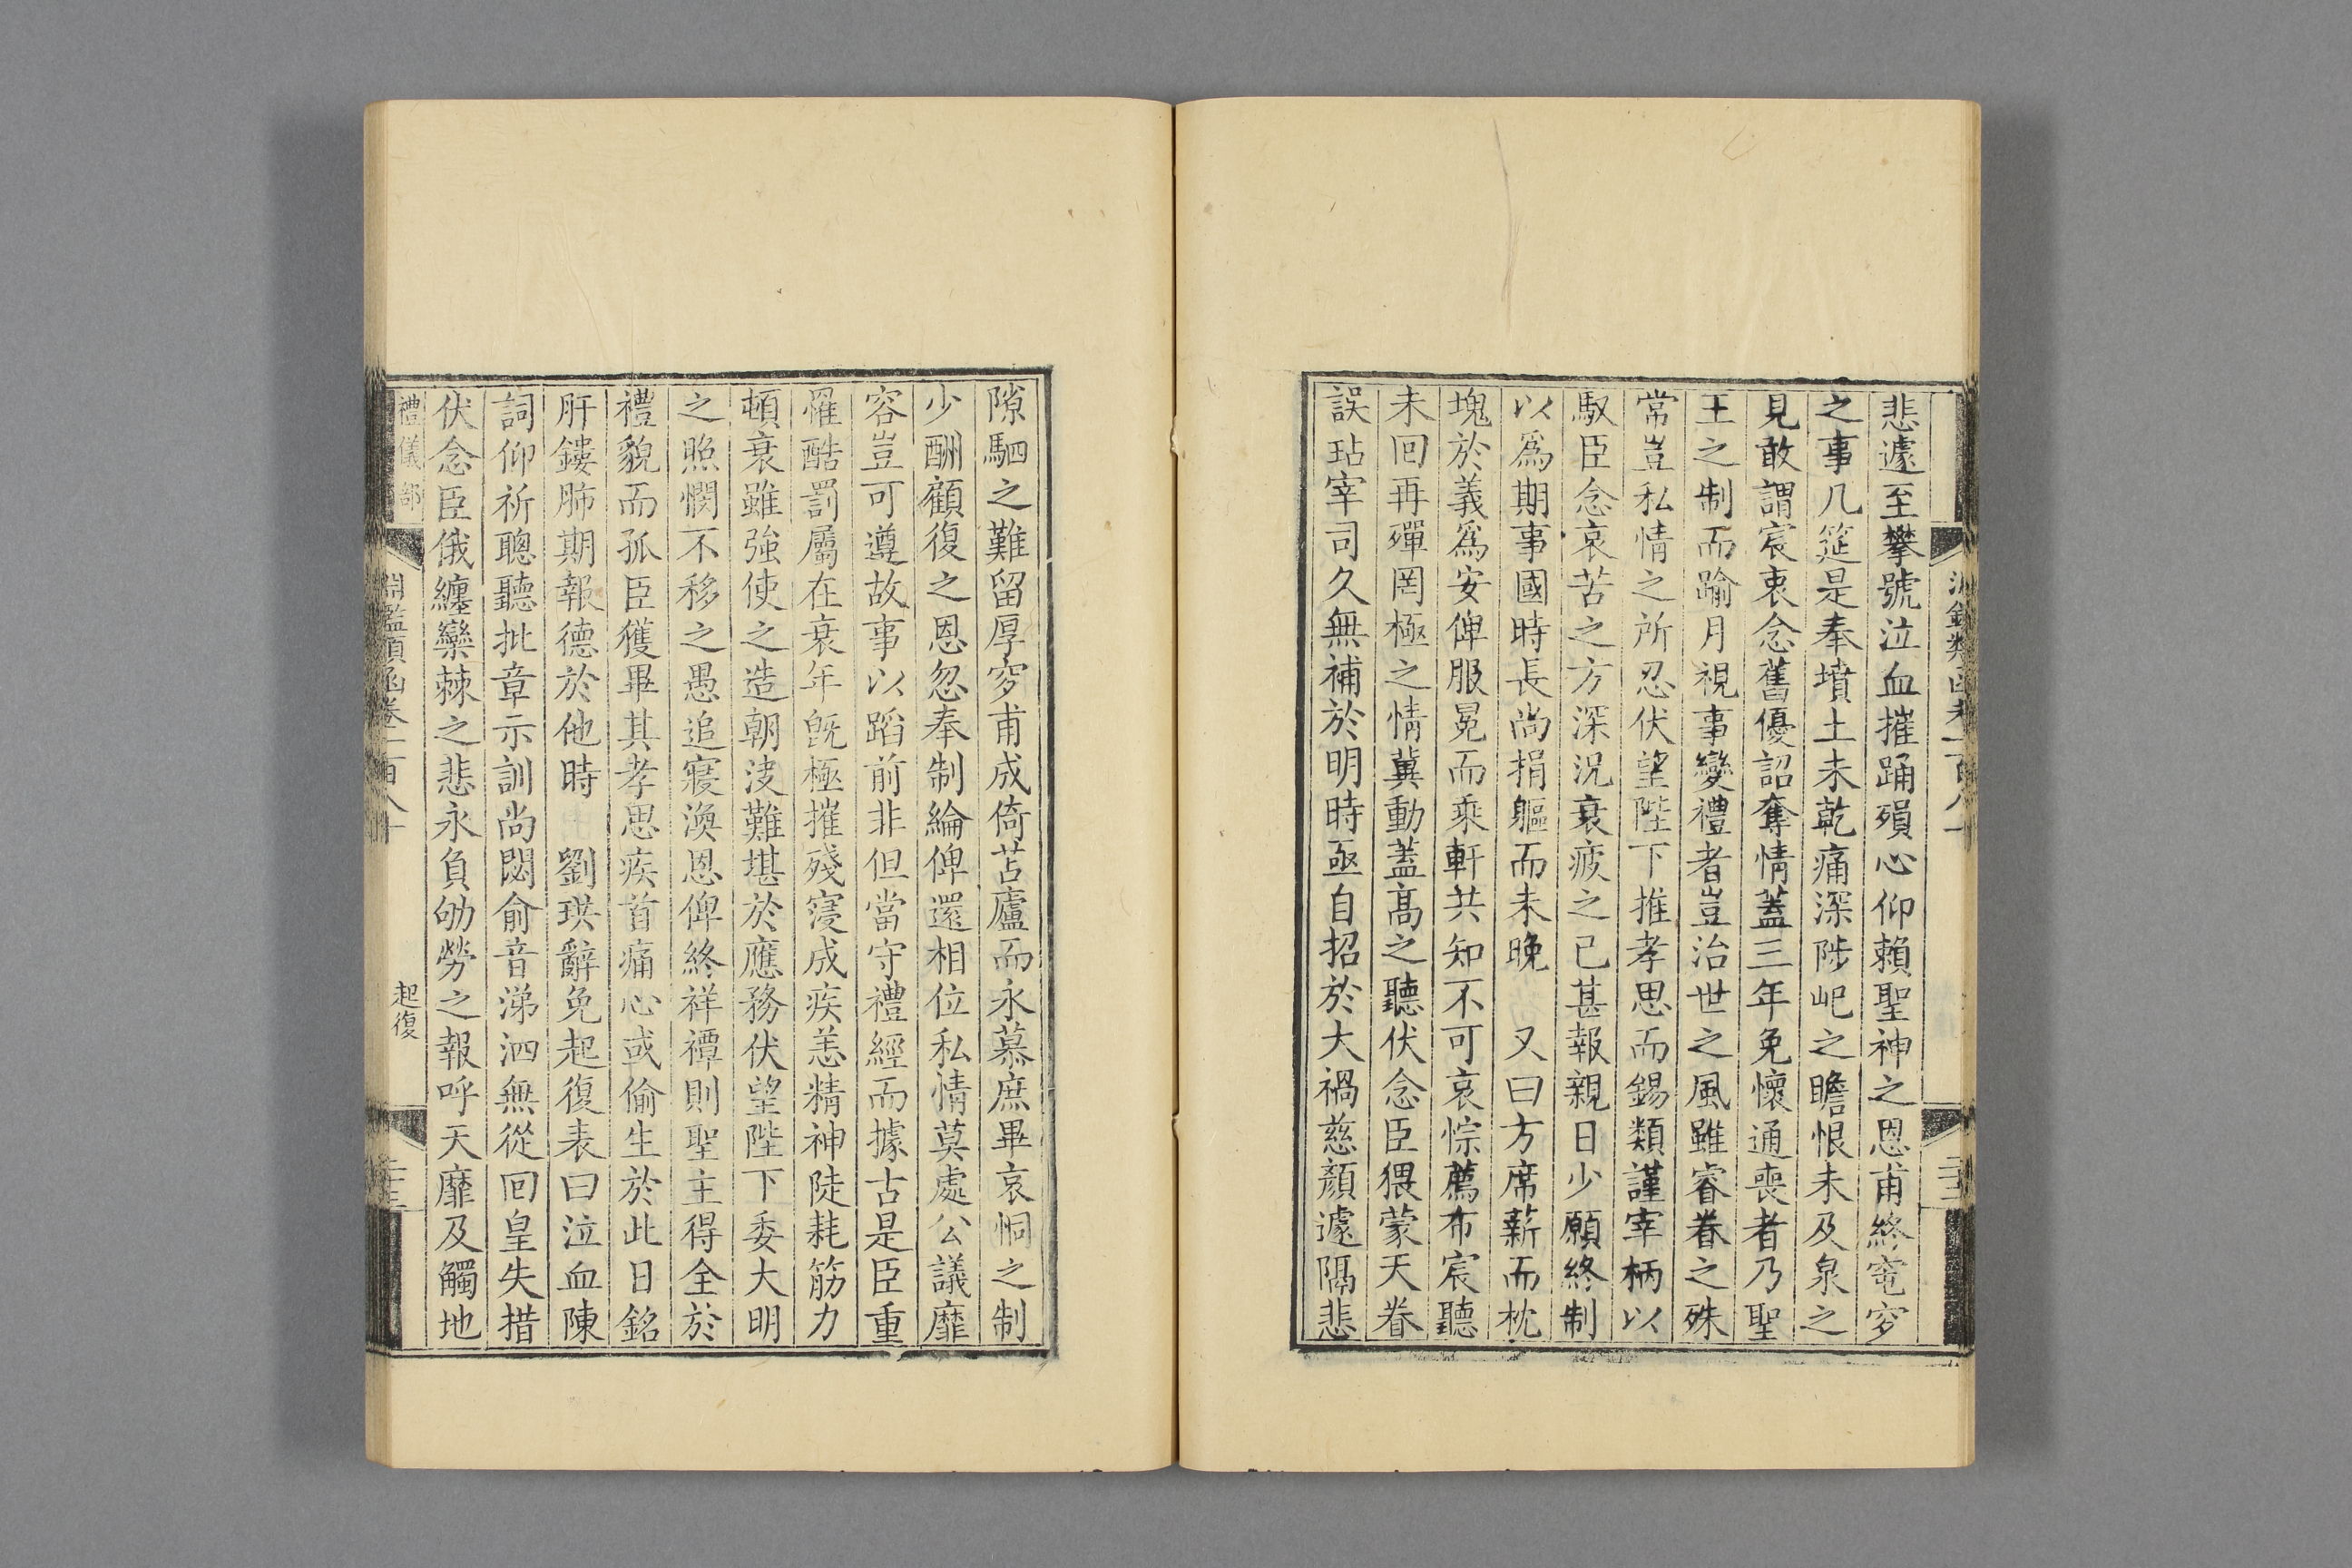 悲遽至攀號泣血摧踊殞心仰賴聖神之恩甫終窀穸
之事几筵是奉墳土未乾痛深陟屺之瞻恨未及泉之
見敢謂宸衷念舊優詔奪情蓋三年免懷通喪者乃聖
王之制而踰月視事變禮者豈治世之風雖睿眷之殊
常豈私情之所忍伏望陛下推孝思而錫類謹宰柄以
馭臣念哀苦之方深況衰疲之已甚報親日少願終制
以爲期事國時長尚捐軀而未晚 又曰方席薪而枕
塊於義爲安俾服冕而乘軒共知不可哀悰薦布宸聽
未回再殫罔極之情冀動蓋高之聽伏念臣猥蒙天眷
誤玷宰司久無補於明時亟自招於大禍慈顏遽隔悲
隙駟之難留厚穸甫成倚苫廬而永慕庶畢哀恫之制
少酬顧復之恩忽奉制綸俾還相位私情莫處公議靡
容豈可遵故事以蹈前非但當守禮經而據古是臣重
罹酷罰屬在衰年旣極摧殘寖成疾恙精神陡耗筋力
頓衰雖強使之造朝決難堪於應務伏望陛下委大明
之照憫不移之愚追寢渙恩俾終祥禫則聖主得全於
禮貌而孤臣獲畢其孝思疾首痛心或偷生於此日銘
肝鏤肺期報德於他時 劉珙辭免起復表曰泣血陳
詞仰祈聰聽批章示訓尚閟俞音涕泗無從回皇失措
伏念臣俄纏欒棘之悲永負劬勞之報呼天靡及觸地
禮儀部
淵鑑類函卷一百八十
起復